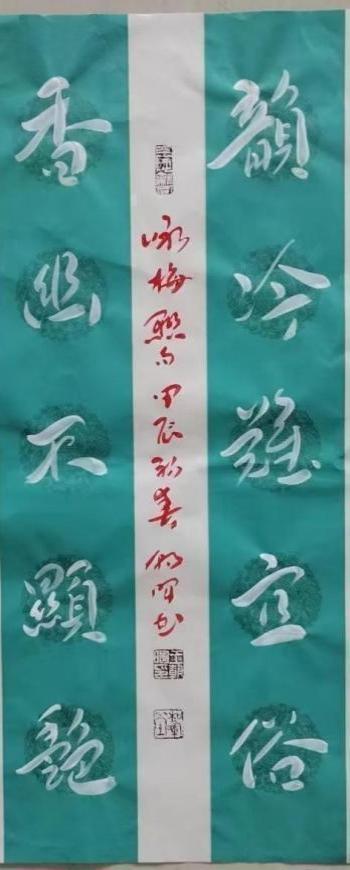 韻冷難宜俗
香幽不顯艷
咏梅聯句 甲辰初春